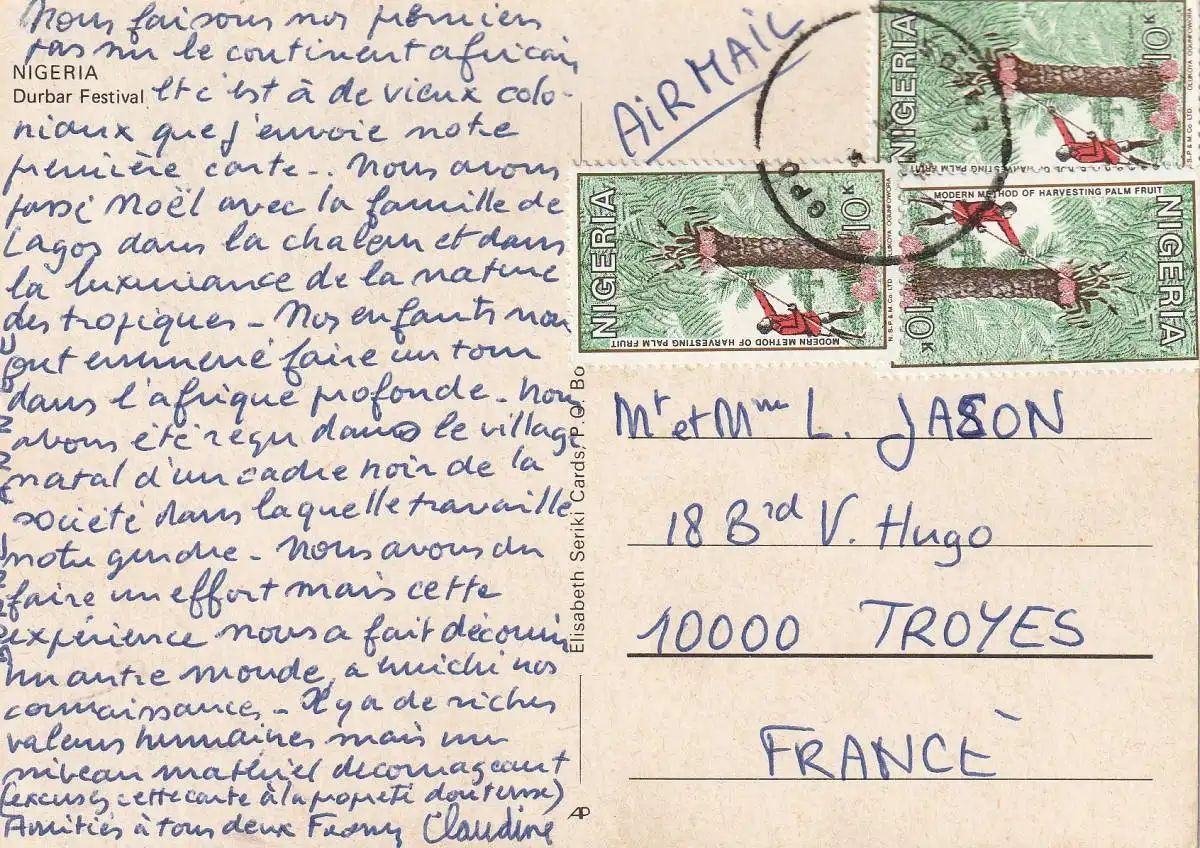 Nous faisons nos premiers
pas sur le continent africain
NIGERIA
Durbar Festival
Et c'est à de vieux colo-
niaux que j'envoie notre
première carte.. Nous avons
passé Noël avec la famille de
Lagos dans la chaleur et dans
la luxuriance de la nature
des tropiques - Nos enfants nous
ont emmené faire un tour
dans l'afrique profonde - Nous
avons été reçu dans le village
natal d'un cadre noir de la
société dans laquelle travaille
notre gendre - Nous avons du
faire un effort mais cette
expérience nous a fait découvrir
un autre monde, a enrichi nos
connaissances - Il y a de riches
valeurs humaines mais un
niveau matériel decourageant
(excusez cette carte à la propreté douteuse)
Amitiés à tous deux Claudine
Elisabeth Seriki Cards, P.O. Bo
AP
AIRMAIL
GPO
NIGERIA
10K
MODERN METHOD OF HARVESTING PALM FRUIT
N.S.P. & M. Co. LTD
NIGERIA
10K
HARVESTING PALM FRUIT
N.S.P. & M. Co. LTD
NIGERIA
10K
MODERN METHOD OF HARVESTING PALM FRUIT
N.S.P. & M. Co. LTD
Mr et Mme L. JASON
18 Brd V. Hugo
10000 TROYES
FRANCE